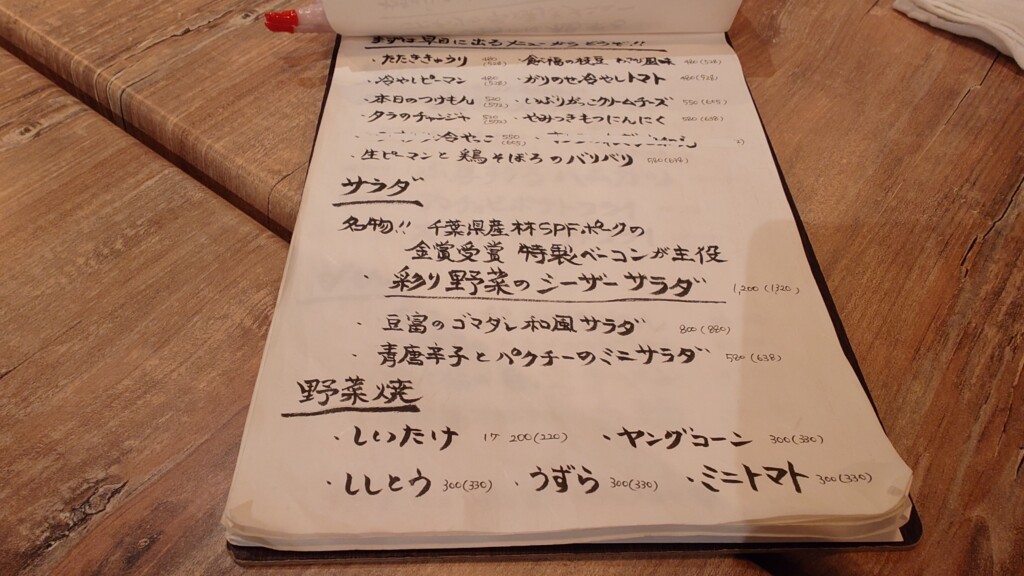 まずは早目に出るメニューからどうぞ!!
・たたききゅうり 480(528) ・飯福の枝豆 わさび風味 480(528)
・冷やしピーマン 480(528) ・ガリのせ冷やしトマト 480(528)
・本日のつけもん 520(572) ・いぶりがっこクリームチーズ 550(605)
・タラのチャンジャ 520(572) ・やみつきもつにんにく 580(638)
冷やっこ 550(605)
・生ピーマンと鶏そぼろのバリバリ
サラダ
名物!! 千葉県産林SPFポークの
金賞受賞 特製ベーコンが主役
・彩り野菜のシーザーサラダ 1,200(1,320)
・豆富のゴマダレ和風サラダ 800(880)
・青唐辛子とパクチーのミニサラダ 580(638)
野菜焼
・しいたけ 1ケ 200(220) ・ヤングコーン 300(330)
・ししとう 300(330) ・うずら 300(330) ・ミニトマト 300(330)